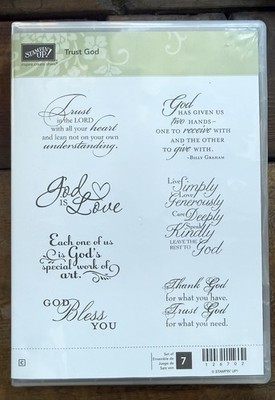 STAMPIN' UP!
Trust God
Trust
in the LORD
with all your heart
and lean not on your own
understanding.
God
HAS GIVEN US
two HANDS—
ONE TO receive WITH
AND THE OTHER
TO give WITH.
~BILLY GRAHAM
God
IS Love
Live Simply
Love Generously
Care Deeply
Speak Kindly
LEAVE THE
REST TO God
Each one of us
is God's
special work of
art.
GOD
Bless
YOU
Thank God
for what you have.
Trust God
for what you need.
Set of
7
126702
© STAMPIN' UP!